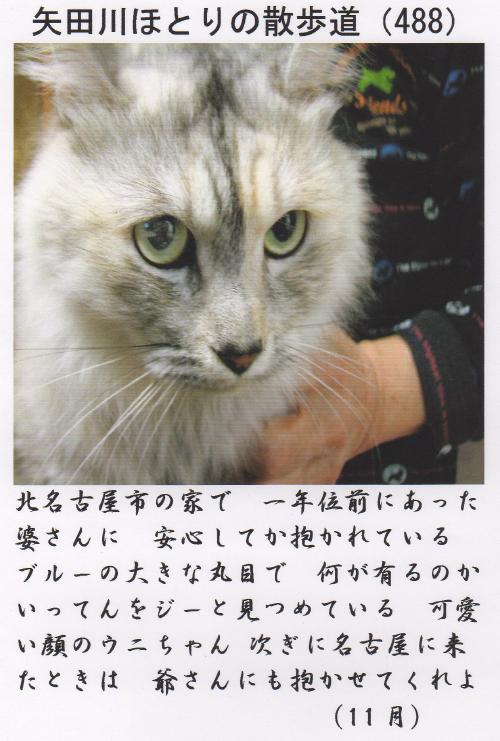 矢田川ほとりの散歩道（488）
北名古屋市の家で　一年位前にあった
婆さんに　安心してか抱かれている
ブルーの大きな丸目で　何が有るのか
いってんをジーと見つめている　可愛
い顔のウニちゃん 次ぎに名古屋に来
たときは　爺さんにも抱かせてくれよ
（11月）